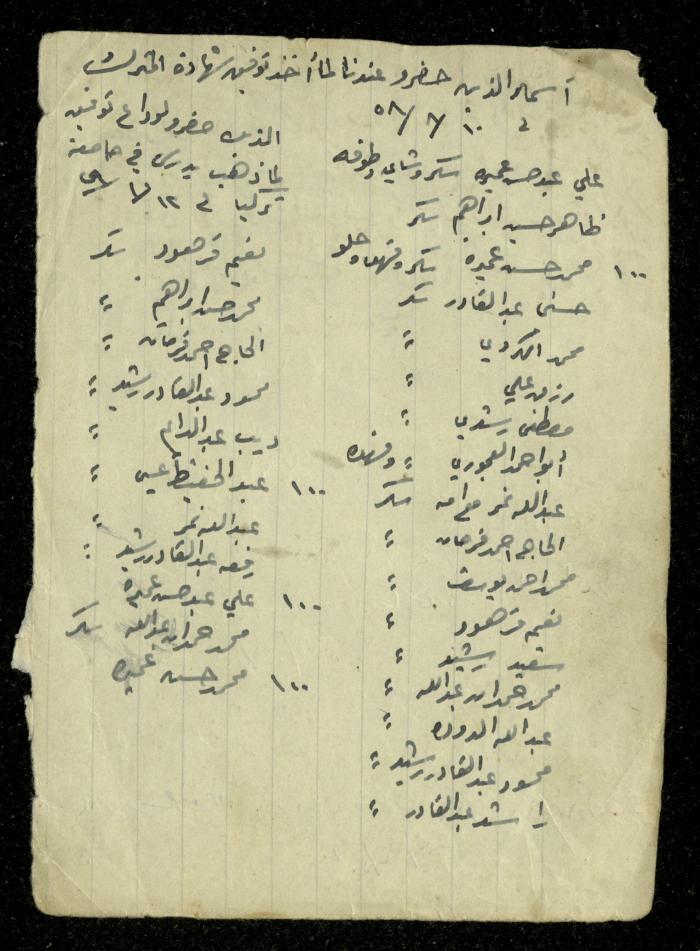 أسماء الذين حضرو عندنا لما أخذ توفيق شهادة المترك
في ١٠ / ٧ / ٥٨
علي عبد حسن عميره سكر وشاي وطوفه
ظاهر حسين ابراهم سكر
١٠٠ محمد حسن عميرة سكر وقهوه وحلو
حسني عبد القادر سكر
محمد الكردي "
رزق علي "
مصطفى رشدي "
أبو احمد العجوري " وقهوه
عبد الله نمر مع امه سكر
الحاج احمد فرحان "
محمد احمد يوسف "
نعيم فرهود "
سعيد رشيد "
محمد حمدان عبد الله "
عبد الله الدوده "
محمود عبد القادر رشيد "
راشد عبد القادر "
الذين حضرو لوداع توفيق
لما ذهب يدرس في جامعة
تركيا في ١٢ / ٧ /
نعيم فرهود سكر
محمد حسن ابراهم "
الحاج احمد فرحان "
محمود عبد القادر رشيد "
ديب عبد الدايم "
١٠٠ عبد الحفيظ عيسى "
عبد الله نمر "
عبد القادر رشيد "
١٠٠ علي عبد حسن عميره
محمد حمدان عبد الله سكر
١٠٠ محمد حسن عميره